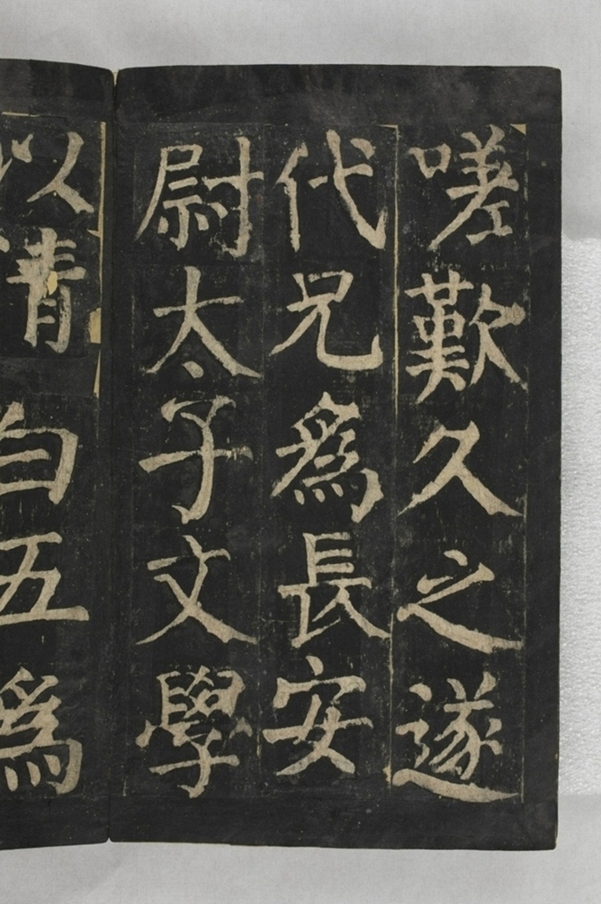 嗟歎久之遂
代兄爲長安
尉太子文學
以清白五爲